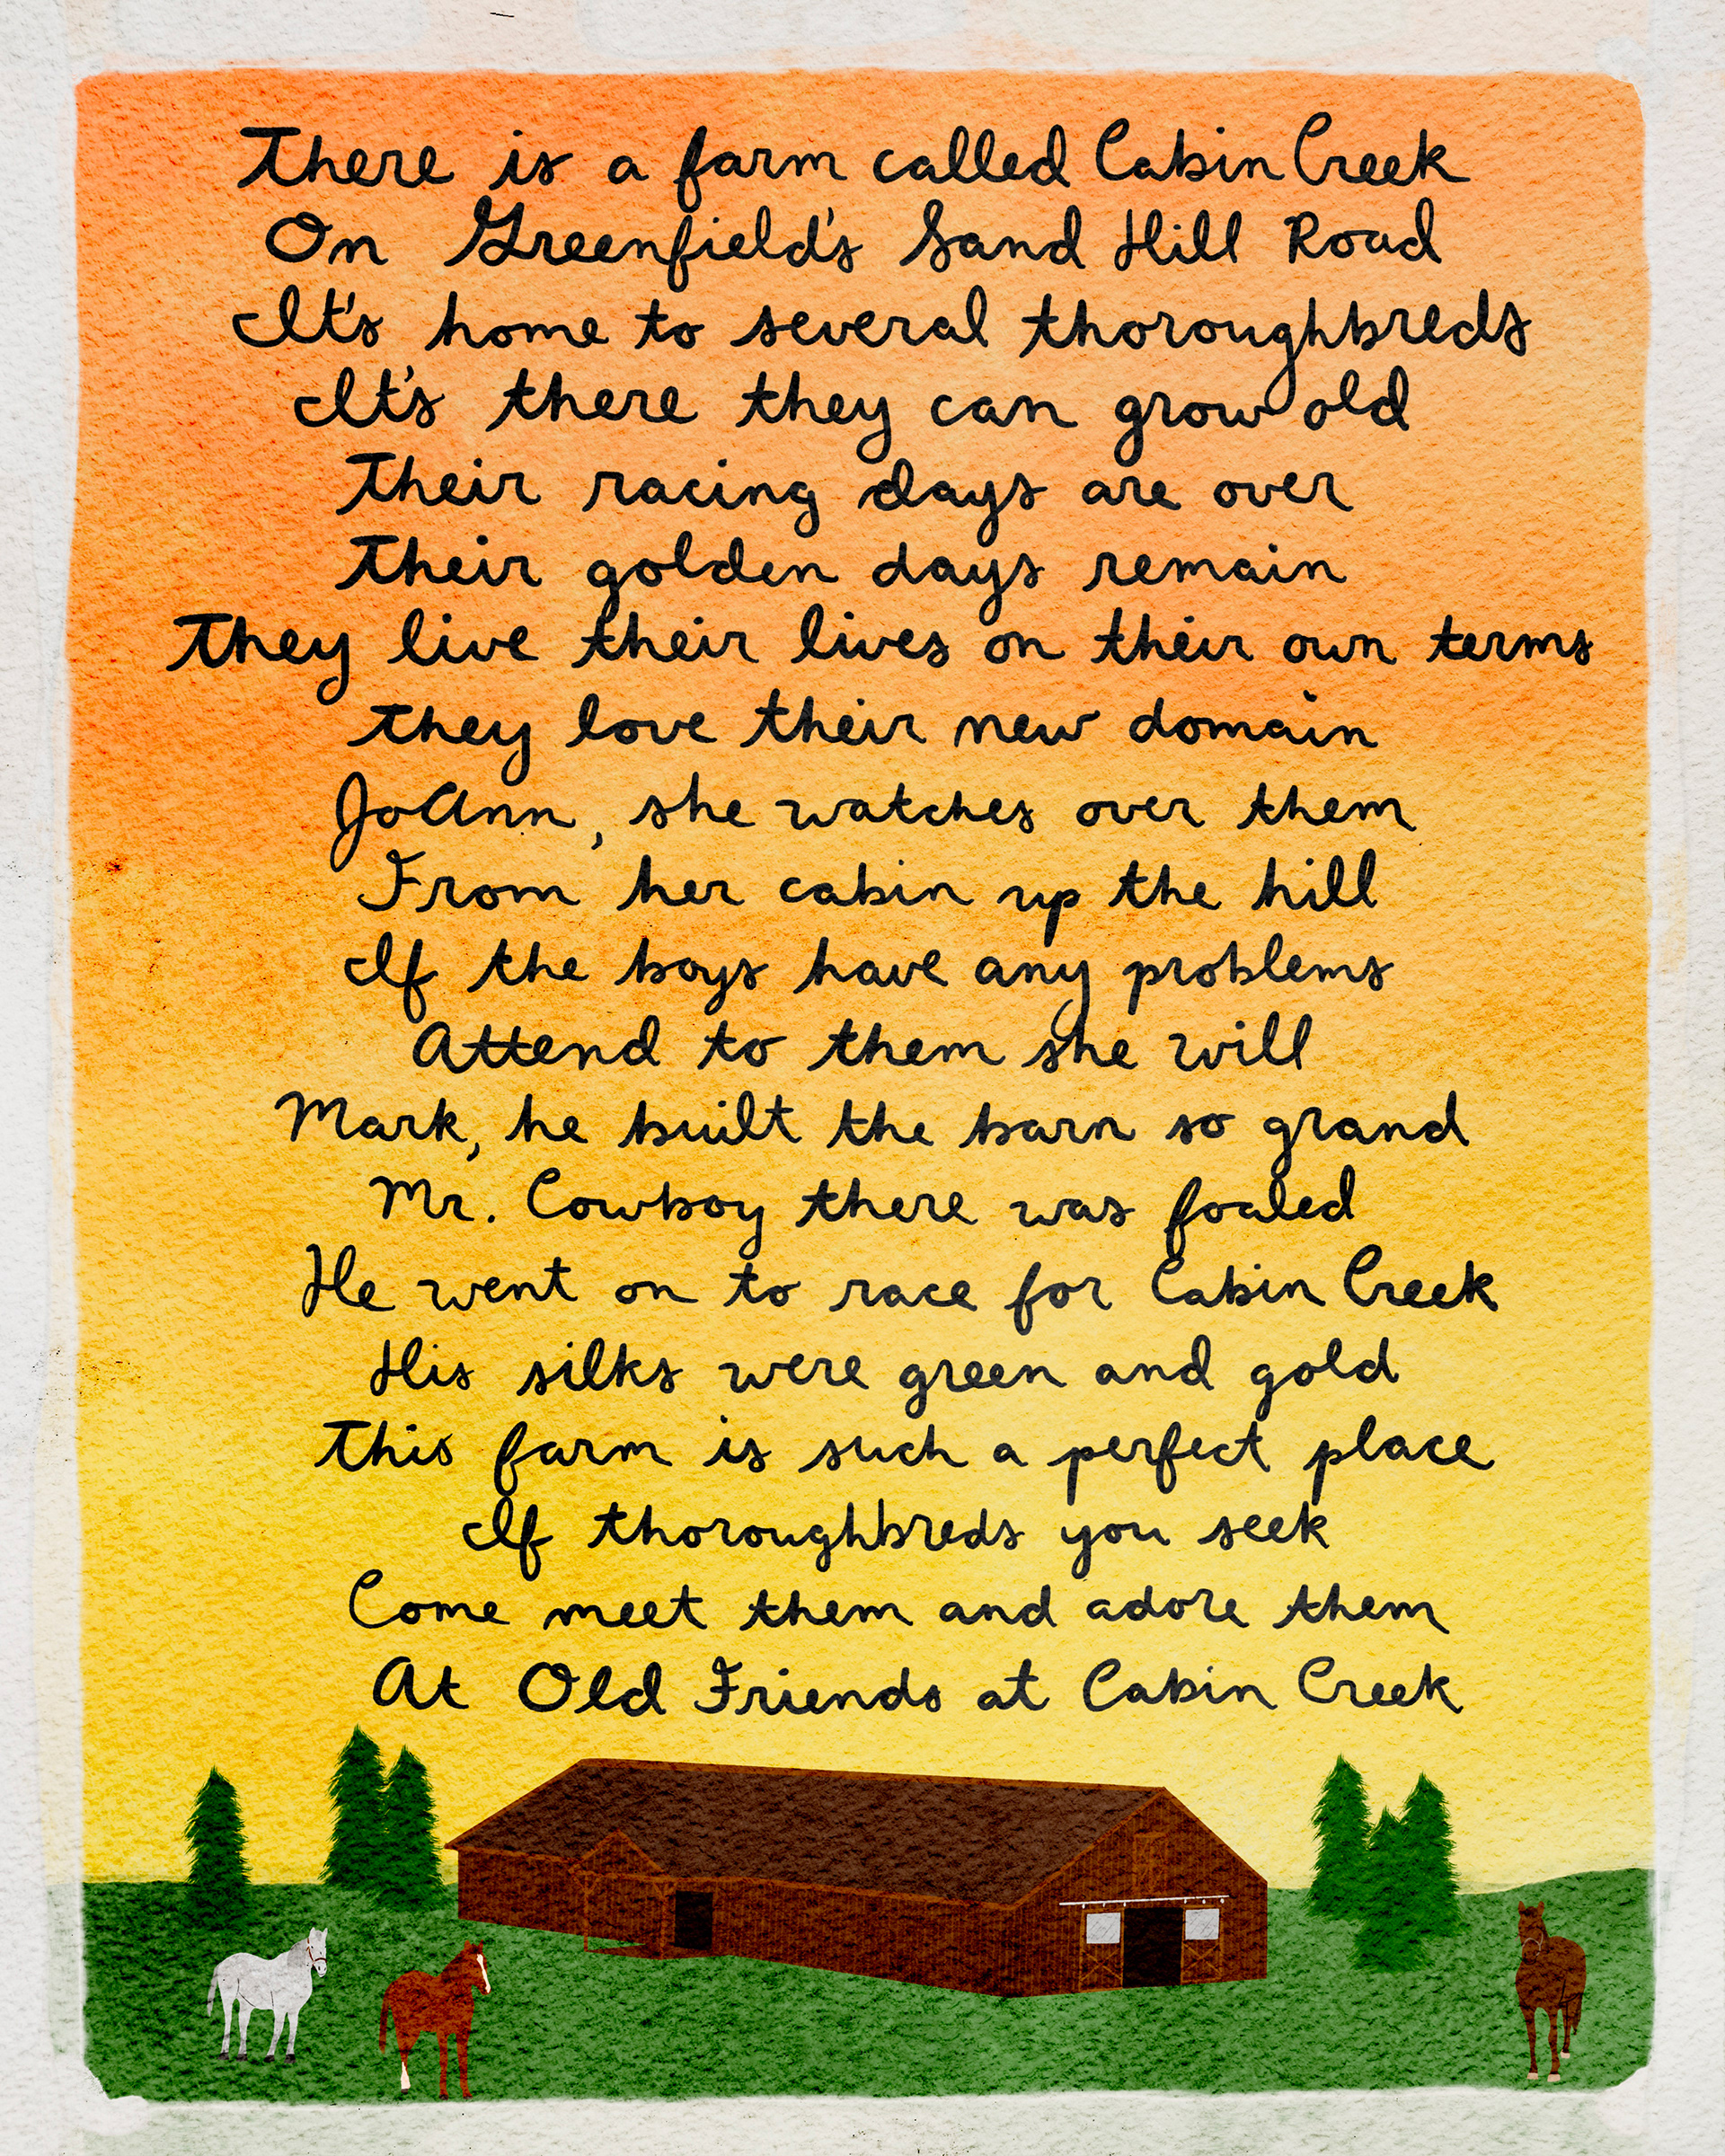 There is a farm called Cabin Creek
On Greenfield's Sand Hill Road
It's home to several thoroughbreds
It's there they can grow old
Their racing days are over
Their golden days remain
They live their lives on their own terms
They love their new domain
JoAnn, she watches over them
From her cabin up the hill
If the boys have any problems
Attend to them she will
Mark, he built the barn so grand
Mr. Cowboy there was foaled
He went on to race for Cabin Creek
His silks were green and gold
This farm is such a perfect place
If thoroughbreds you seek
Come meet them and adore them
At Old Friends at Cabin Creek